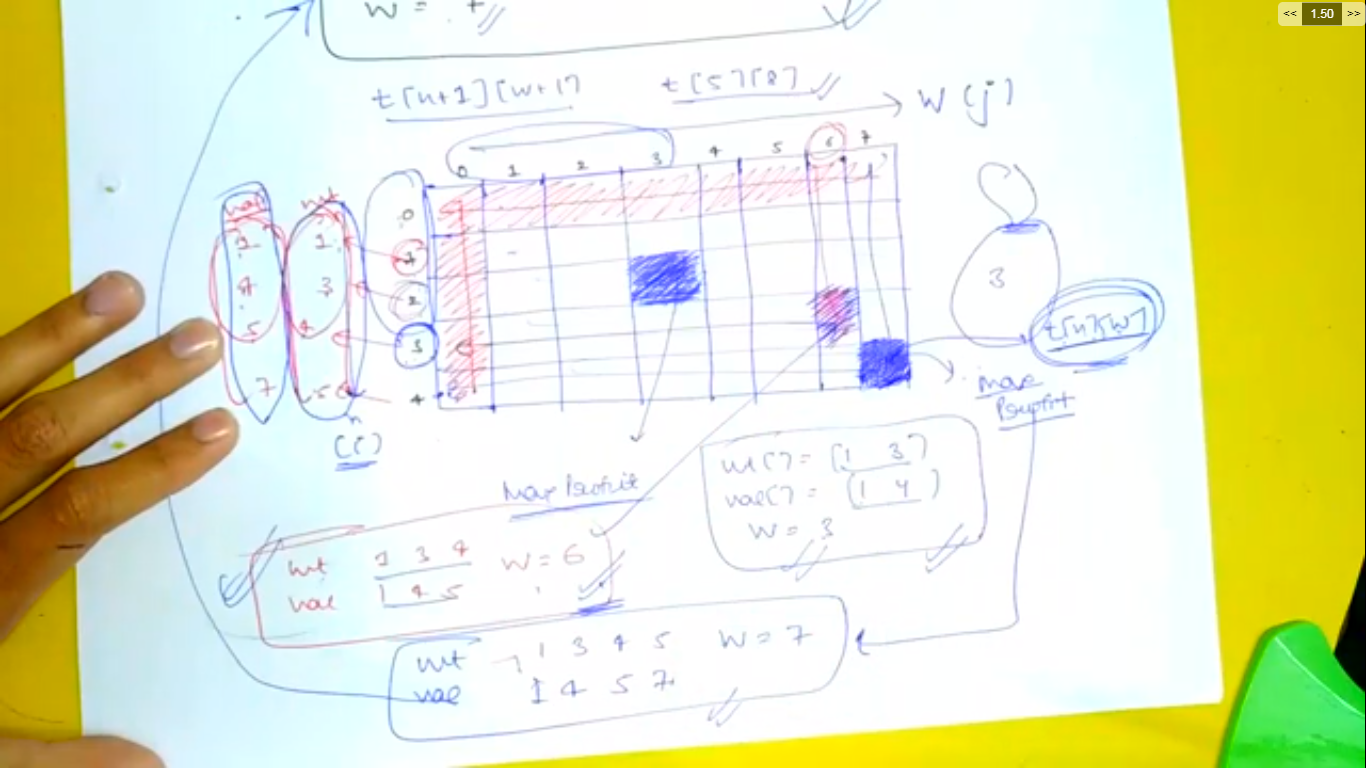 << 1.50 >>
W = 7
t[n+1][w+1] t[5][8]
W (j)
0 1 2 3 4 5 6 7
val wt
0
1 1 1
4 3 2
5 4 3
7 5 4
n
(i)
3
t[n][W]
max
Profit
Max Profit
wt[] = [1 3]
val[] = [1 4]
W = 3
wt 1 3 4 W = 6
val 1 4 5
wt 1 3 4 5 W = 7
val 1 4 5 7